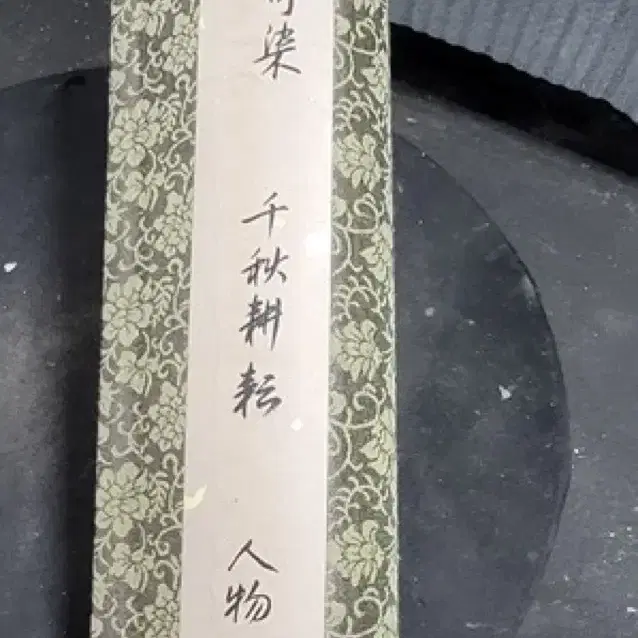 染
千秋耕耘
人物